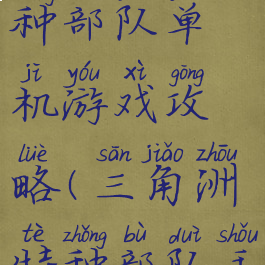 种部队单
jī yóu xì gōng
机游戏攻
lüè sān jiǎo zhōu
略(三角洲
tè zhǒng bù duì shǒu
特种部队手